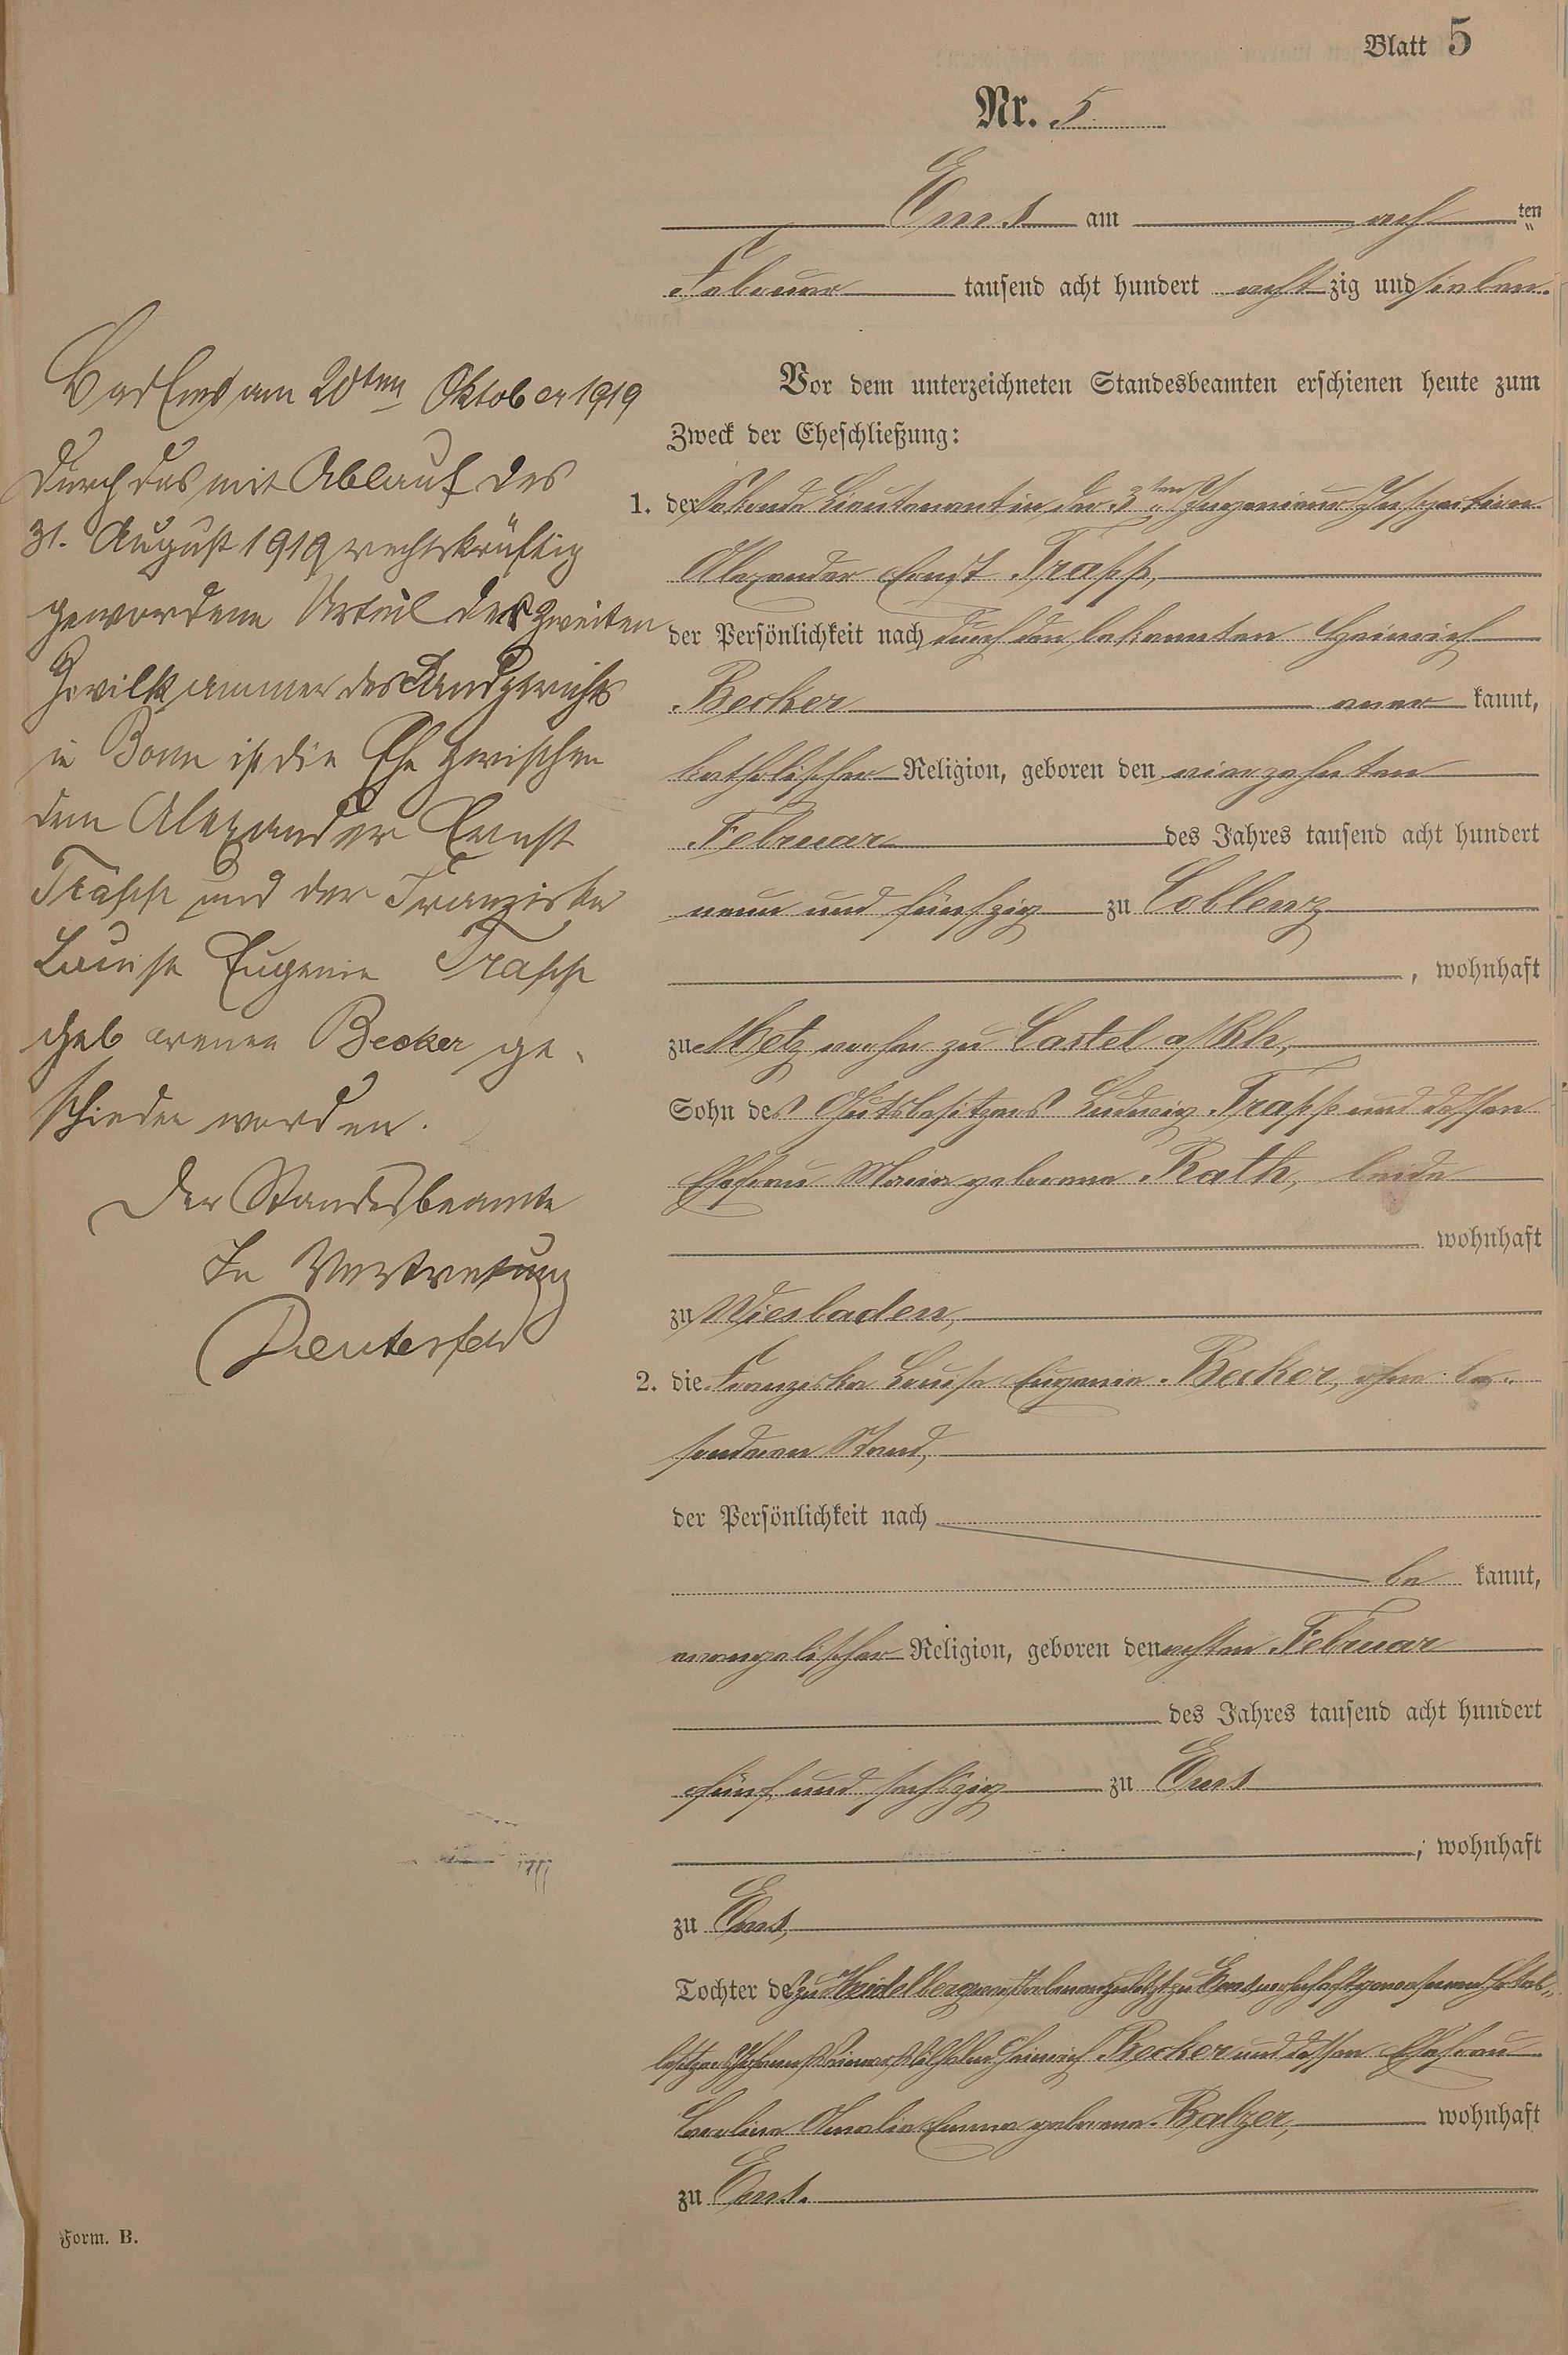 Blatt 5
Nr. 5
Ems am ach ten
Februar tausend acht hundert acht zig und sieben.
Vor dem unterzeichneten Standesbeamten erschienen heute zum
Zweck der Eheschließung:
1. der Sekonde Lieutenant in der 3ten Ingenieur Inspection
Alexander Ernst Trapp,
der Persönlichkeit nach durch den bekannten Heinrich
Becker aner kannt,
katholischer Religion, geboren den vierzehnten
Februar des Jahres tausend acht hundert
neun und fünfzig zu Coblenz
, wohnhaft
zu Metz vorher zu Castel a/Rh,
Sohn des Gutsbesitzers Ludwig Trapp und dessen
Ehefrau Maria geborene Rath, beide
wohnhaft
zu Wiesbaden,
2. die Franziska Louise Eugenie Becker, ohne be-
sonderen Stand,
der Persönlichkeit nach
be kannt,
evangelischer Religion, geboren den achten Februar
des Jahres tausend acht hundert
fünf und sechszig zu Ems
, wohnhaft
zu Ems,
Tochter des zu Heidelberg verstorbenen zuletzt zu Ems wohnhaft gewesenen Hotel-
besitzers Johann Wilhelm Heinrich Becker und dessen Ehefrau
Caroline Amalie Emma geborene Balzer, wohnhaft
zu Ems.
Bad Ems am 20ten Oktober 1919
Durch das mit Ablauf des
31. August 1919 rechtskräftig
gewordene Urteil der zweiten
Zivilkammer des Landgerichts
in Bonn ist die Ehe zwischen
dem Alexander Ernst
Trapp und der Franziska
Louise Eugenie Trapp
geborenen Becker ge-
schieden worden.
Der Standesbeamte
In Vertretung
Form. B.